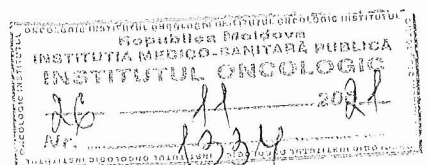 Republica Moldova
INSTITUȚIA MEDICO-SANITARĂ PUBLICĂ
INSTITUTUL ONCOLOGIC
26 11 2021
Nr. 1334